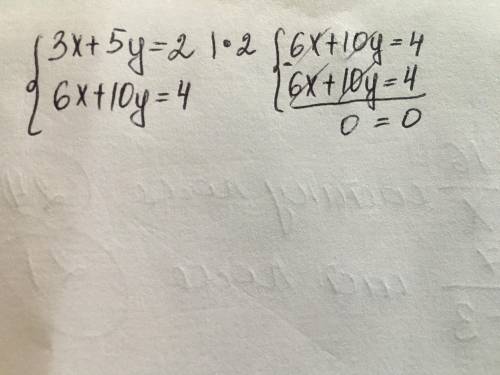 { 3x+5y=2 | •2 { 6x+10y=4
6x+10y=4 - 6x+10y=4
0 = 0